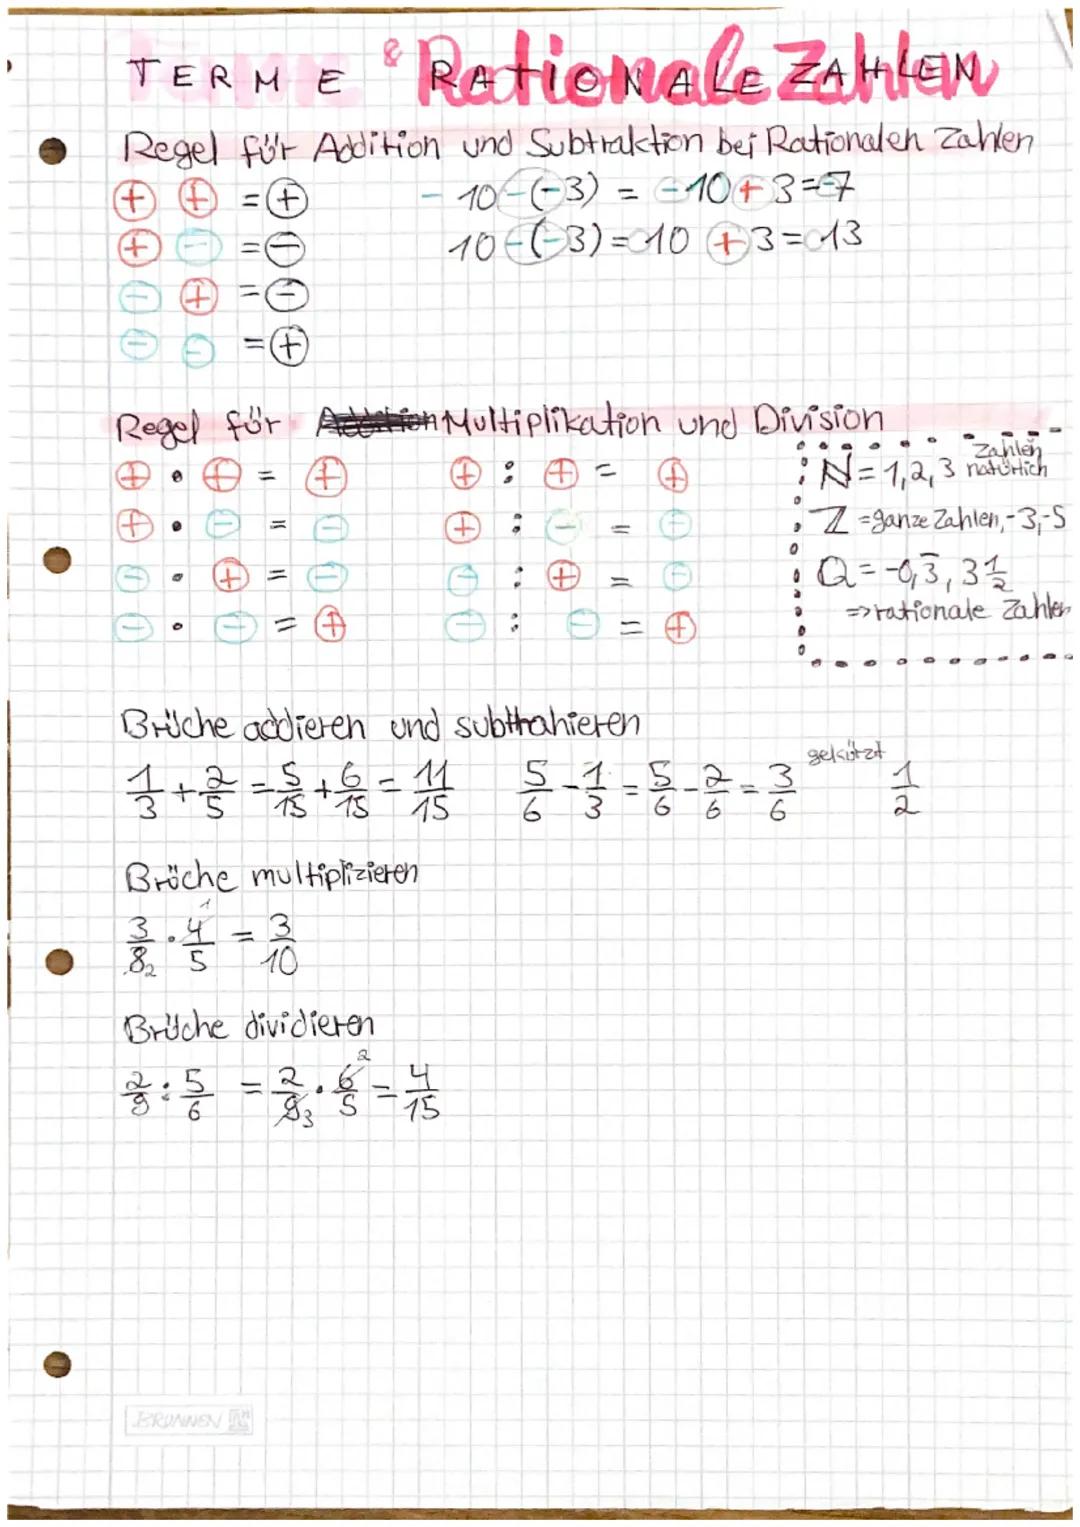 TERME & RATIONALE ZAHLEN
Regel für Addition und Subtraktion bei Rationalen Zahlen
⊕ ⊕ = ⊕
⊕ ⊖ = ⊖
⊖ ⊕ = ⊖
⊖ ⊖ = ⊕
- 10-(-3) = -10+3=-7
10-(-3)=10 +3=13
Regel für Multiplikation und Division
⊕ · ⊕ = ⊕
⊕ · ⊖ = ⊖
⊖ · ⊕ = ⊖
⊖ · ⊖ = ⊕
⊕ : ⊕ = ⊕
⊕ : ⊖ = ⊖
⊖ : ⊕ = ⊖
⊖ : ⊖ = ⊕
N=1,2,3 natürlich Zahlen
Z =ganze Zahlen,-3,-5
Q=-0,3̅, 3 1/2
=>rationale Zahlen
Brüche addieren und subtrahieren
1/3 + 2/5 = 5/15 + 6/15 = 11/15
5/6 - 1/3 = 5/6 - 2/6 = 3/6 gekürzt 1/2
Brüche multiplizieren
3/8 2 · 4/5 1 = 3/10
Brüche dividieren
2/9 : 5/6 = 2/9 3 · 6/5 2 = 4/15
BRUNNEN